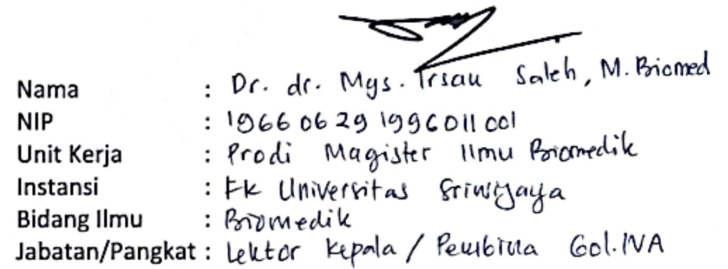 Nama : Dr. dr. Mgs. Irsan Saleh, M. Biomed
NIP : 19660629 1996011 001
Unit Kerja : Prodi Magister Ilmu Biomedik
Instansi : FK Universitas Sriwijaya
Bidang Ilmu : Biomedik
Jabatan/Pangkat : Lektor Kepala / Pembina Gol.IVA